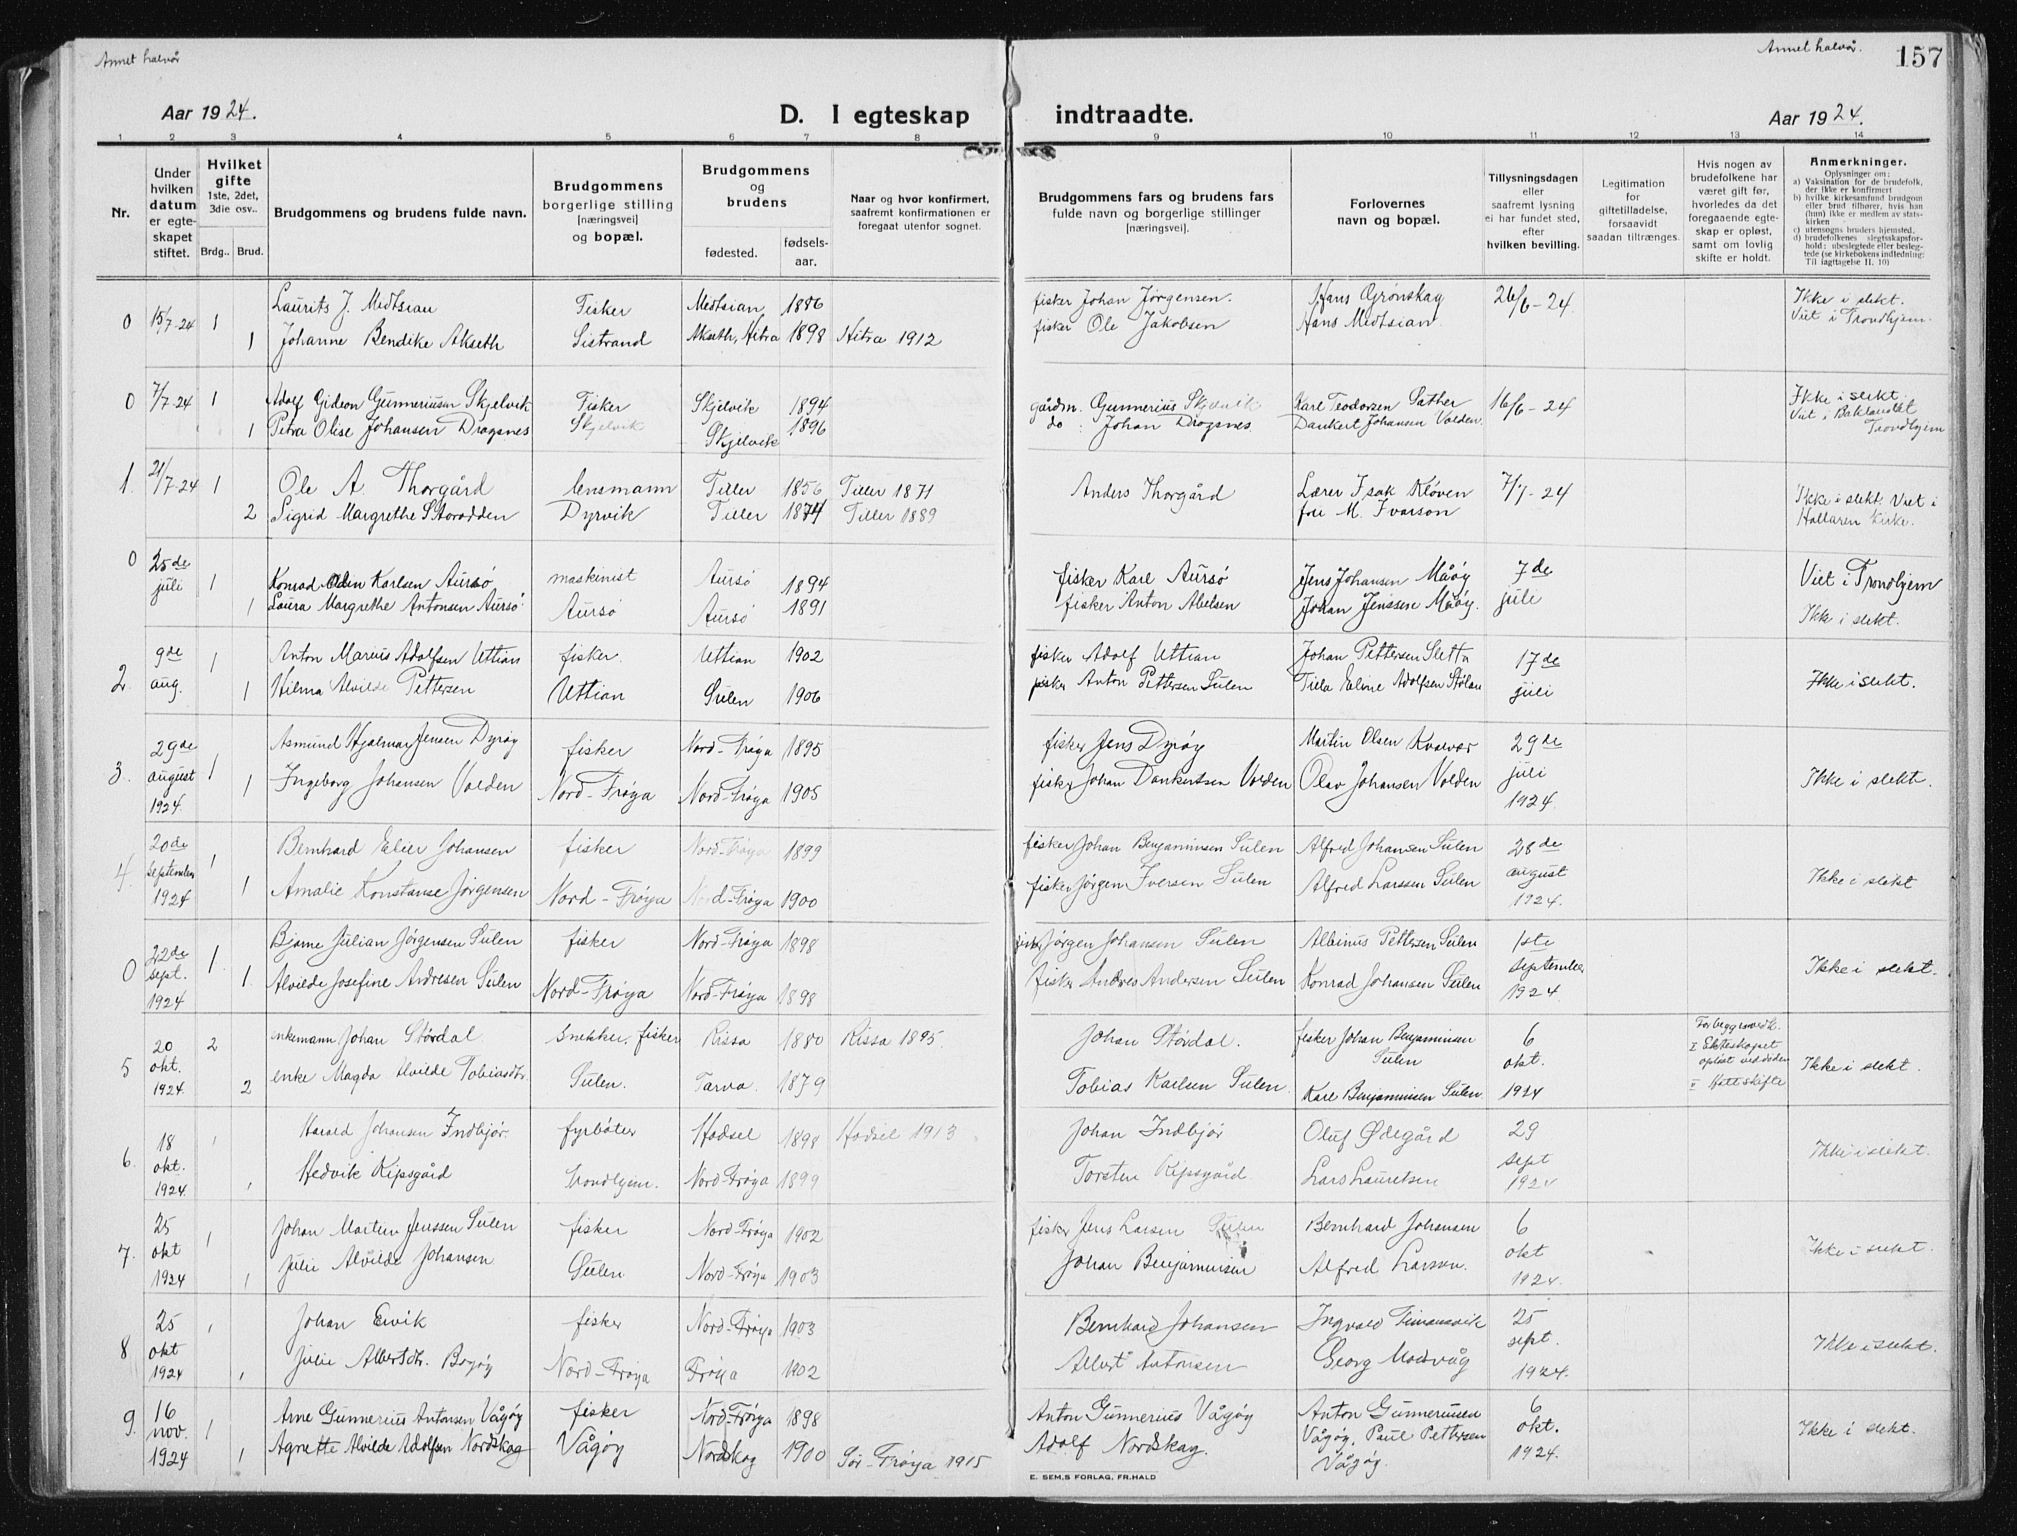 Annet halvår
Annet halvår.
157
Aar 1924.
D. I egteskap
indtraadte.
Aar 1924.
1 2 3 4 5 6 7 8 9 10 11 12 13 14
Nr.
Under hvilken datum er egte-skapet stiftet.
Hvilket gifte
1ste, 2det, 3die osv..
Brdg.. Brud.
Brudgommens og brudens fulde navn.
Brudgommens borgerlige stilling [næringsvei] og bopæl.
Brudgommens og brudens
fødested.
fødsels-aar.
Naar og hvor konfirmert, saafremt konfirmationen er foregaat utenfor sognet.
Brudgommens fars og brudens fars fulde navn og borgerlige stillinger [næringsvei].
Forlovernes navn og bopæl.
Tillysningsdagen eller saafremt lysning ei har fundet sted, efter hvilken bevilling.
Legitimation for giftetilladelse, forsaavidt saadan tiltrænges.
Hvis nogen av brudefolkene har været gift før, hvorledes da det foregaaende egte-skap er opløst, samt om lovlig skifte er holdt.
Anmerkninger.
Oplysninger om:
a) Vaksination for de brudefolk, der ikke er konfirmert
b) hvilke kirkesamfund brudgom eller brud tilhører, hvis han (hun) ikke er medlem av stats-kirken
c) utensogns bruders hjemsted.
d) brudefolkenes slegtsskapsfor-hold: ubeslegtede eller besleg-tede (se kirkebokens indledning: Til iagttagelse II. 10)
0 15/7-24 1 Laurits J. Medtsian Fisker Medtsian 1886 fisker Johan Jørgensen. Hans Grønskag 26/6-24 Ikke i slekt. Viet i Trondhjem.
1 Johanne Bendike Akseth Sistrand Akseth, Hitra 1898 Hitra 1912 fisker Ole Jakobsen Hans Medtsian
0 7/7-24 1 Adolf Gideon Gunneriusen Skjelvik Fisker Skjelvik 1894 gårdm. Gunnerius Skjelvik Karl Teodorsen Sæther 16/6-24 Ikke i slekt. Viet i Baklandet Trondhjem
1 Petra Olise Johansen Dragsnes Skjelvik Skjelvik 1896 do : Johan Dragsnes Dankert Johansen Valden
1. 21/7-24 1 Ole A. Thorgård lensmann Tiller 1856 Tiller 1871 Anders Thorgård Lærer Isak Kløven 7/7-24 Ikke i slekt. Viet i
2 Sigrid Margrethe Storødden Dyrvik Tiller 1874 Tiller 1889 fru M. Ivarson Hallaren kirke.
0 25de juli 1 Konrad Odin Karlsen Aursø maskinist Aursø 1894 fisker Karl Aursø Jens Johansen Måøy 7de juli Viet i Trondhjem
1 Laura Margrethe Antonsen Aursø Aursø Aursø 1891 fisker Anton Abelsen Johan Jenssen Måøy. Ikke i slekt.
2. 9de aug. 1 Anton Marius Adolfsen Uttian fisker. Uttian 1902 fisker Adolf Uttian Johan Pettersen Sletta 17de juli Ikke i slekt.
1 Hilma Alvilde Pettersen Uttian Sulen 1906 fisker Anton Pettersen Sulen Tilla Eline Adolfsen
3. 29de august 1924. 1 Asmund Hjalmar Jensen Dyrøy fisker Nord-Frøya 1895 fisker Jens Dyrøy Martin Olsen Kvalvær 29de juli 1924. Ikke i slekt.
1 Ingeborg Johansen Valden Nord-Frøya Nord-Frøya 1905 fisker Johan Dankertsen Valden Olav Johansen Valden
4. 20de september 1924 1 Bernhard Elier Johansen fisker Nord-Frøya 1899 fisker Johan Benjaminsen Sulen Alfred Johansen Sulen 28de august 1924. Ikke i slekt
1 Amalie Konstanse Jørgensen Nord-Frøya Nord-Frøya 1900 fisker Jørgen Iversen Sulen Alfred Larssen Sulen
0 22de sept. 1924 1. Bjarne Julian Jørgensen Sulen fisker Nord-Frøya 1898 fisker Jørgen Johansen Sulen Albinus Pettersen Sulen 1ste september 1924. Ikke i slekt.
1. Alvilde Josefine Andresen Sulen Nord-Frøya Nord-Frøya 1898 fisker Andres Andersen Sulen Konrad Johansen Sulen
5 20 okt. 1924. 2 enkemann Johan Størdal. Snekker, fisker Rissa 1880 Rissa 1895. Johan Størdal. fisker Johan Benjaminsen Sulen 6 okt. 1924 I Ekteskapet opløst ved døden II Hatt skifte Ikke i slekt.
2 enke Magda Alvilde Tobiasdtr. Sulen. Tarva. 1879 Tobias Karlsen Sulen. Karl Benjaminsen Sulen.
6. 18 okt. 1924. 1 Harald Johansen Indbjør. fyrbøter Hadsel 1898 Hadsel 1913. Johan Indbjør Oluf Ødegård 29 sept 1924 Ikke i slekt.
1 Hedvik Ripsgård Trondhjem. Nord-Frøya 1899 Torsten Ripsgård. Lars Lauretsen
7. 25 okt 1924 1 Johan Martin Jenssen Sulen fisker Nord-Frøya 1902 fisker Jens Larsen Sulen Bernhard Johansen 6 okt 1924. Ikke i slekt.
1 Julie Alvilde Johansen Sulen Nord-Frøya 1903 Johan Benjaminsen Alfred Larsen.
8 25 okt 1924 1 Johan Ervik fisker Nord-Frøya 1903 Bernhard Johansen Ingvald 25 sept. 1924. Ikke i slekt.
1 Julie Albertsdtr. Bogøy Nord-Frøya Frøya 1902 Albert Antonsen Georg Modvåg
9. 16 nov. 1924 1 Arne Gunnerius Antonsen Vågøy fisker Nord-Frøya 1898 Anton Gunnerius Vågøy Anton Gunneriusen 6 okt. 1924. Ikke i slekt.
1 Agnette Alvilde Adolfsen Nordskag Vågøy Nordskag 1900 Sør-Frøya 1915 Adolf Nordskag. Vågøy, Paul Pettersen Vågøy.
E. SEM,S FORLAG, FR.HALD